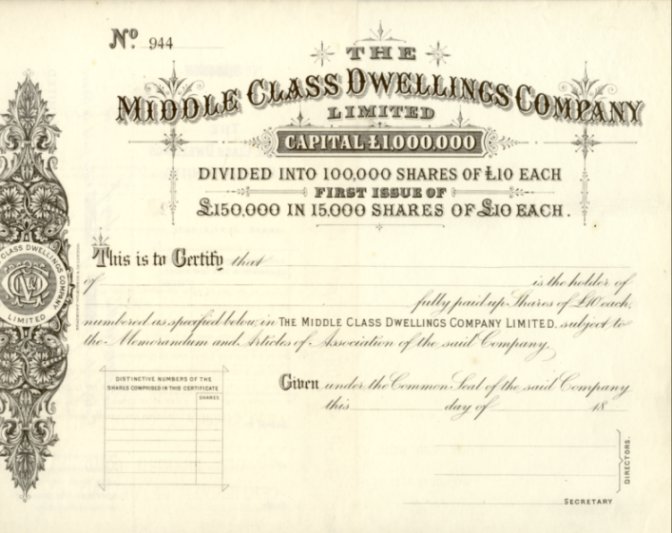 No. 944
THE
MIDDLE CLASS DWELLINGS COMPANY
LIMITED
CAPITAL £1,000,000
DIVIDED INTO 100,000 SHARES OF £10 EACH
FIRST ISSUE OF
£150,000 IN 15,000 SHARES OF £10 EACH.
This is to Certify that
of is the holder of
fully paid up Shares of £10 each,
numbered as specified below, in THE MIDDLE CLASS DWELLINGS COMPANY LIMITED, subject to
the Memorandum and Articles of Association of the said Company.
DISTINCTIVE NUMBERS OF THE
SHARES COMPRISED IN THIS CERTIFICATE
SHARES
Given under the Common Seal of the said Company
this day of 18
DIRECTORS.
SECRETARY
CLASS DWELLINGS COMPANY
LIMITED